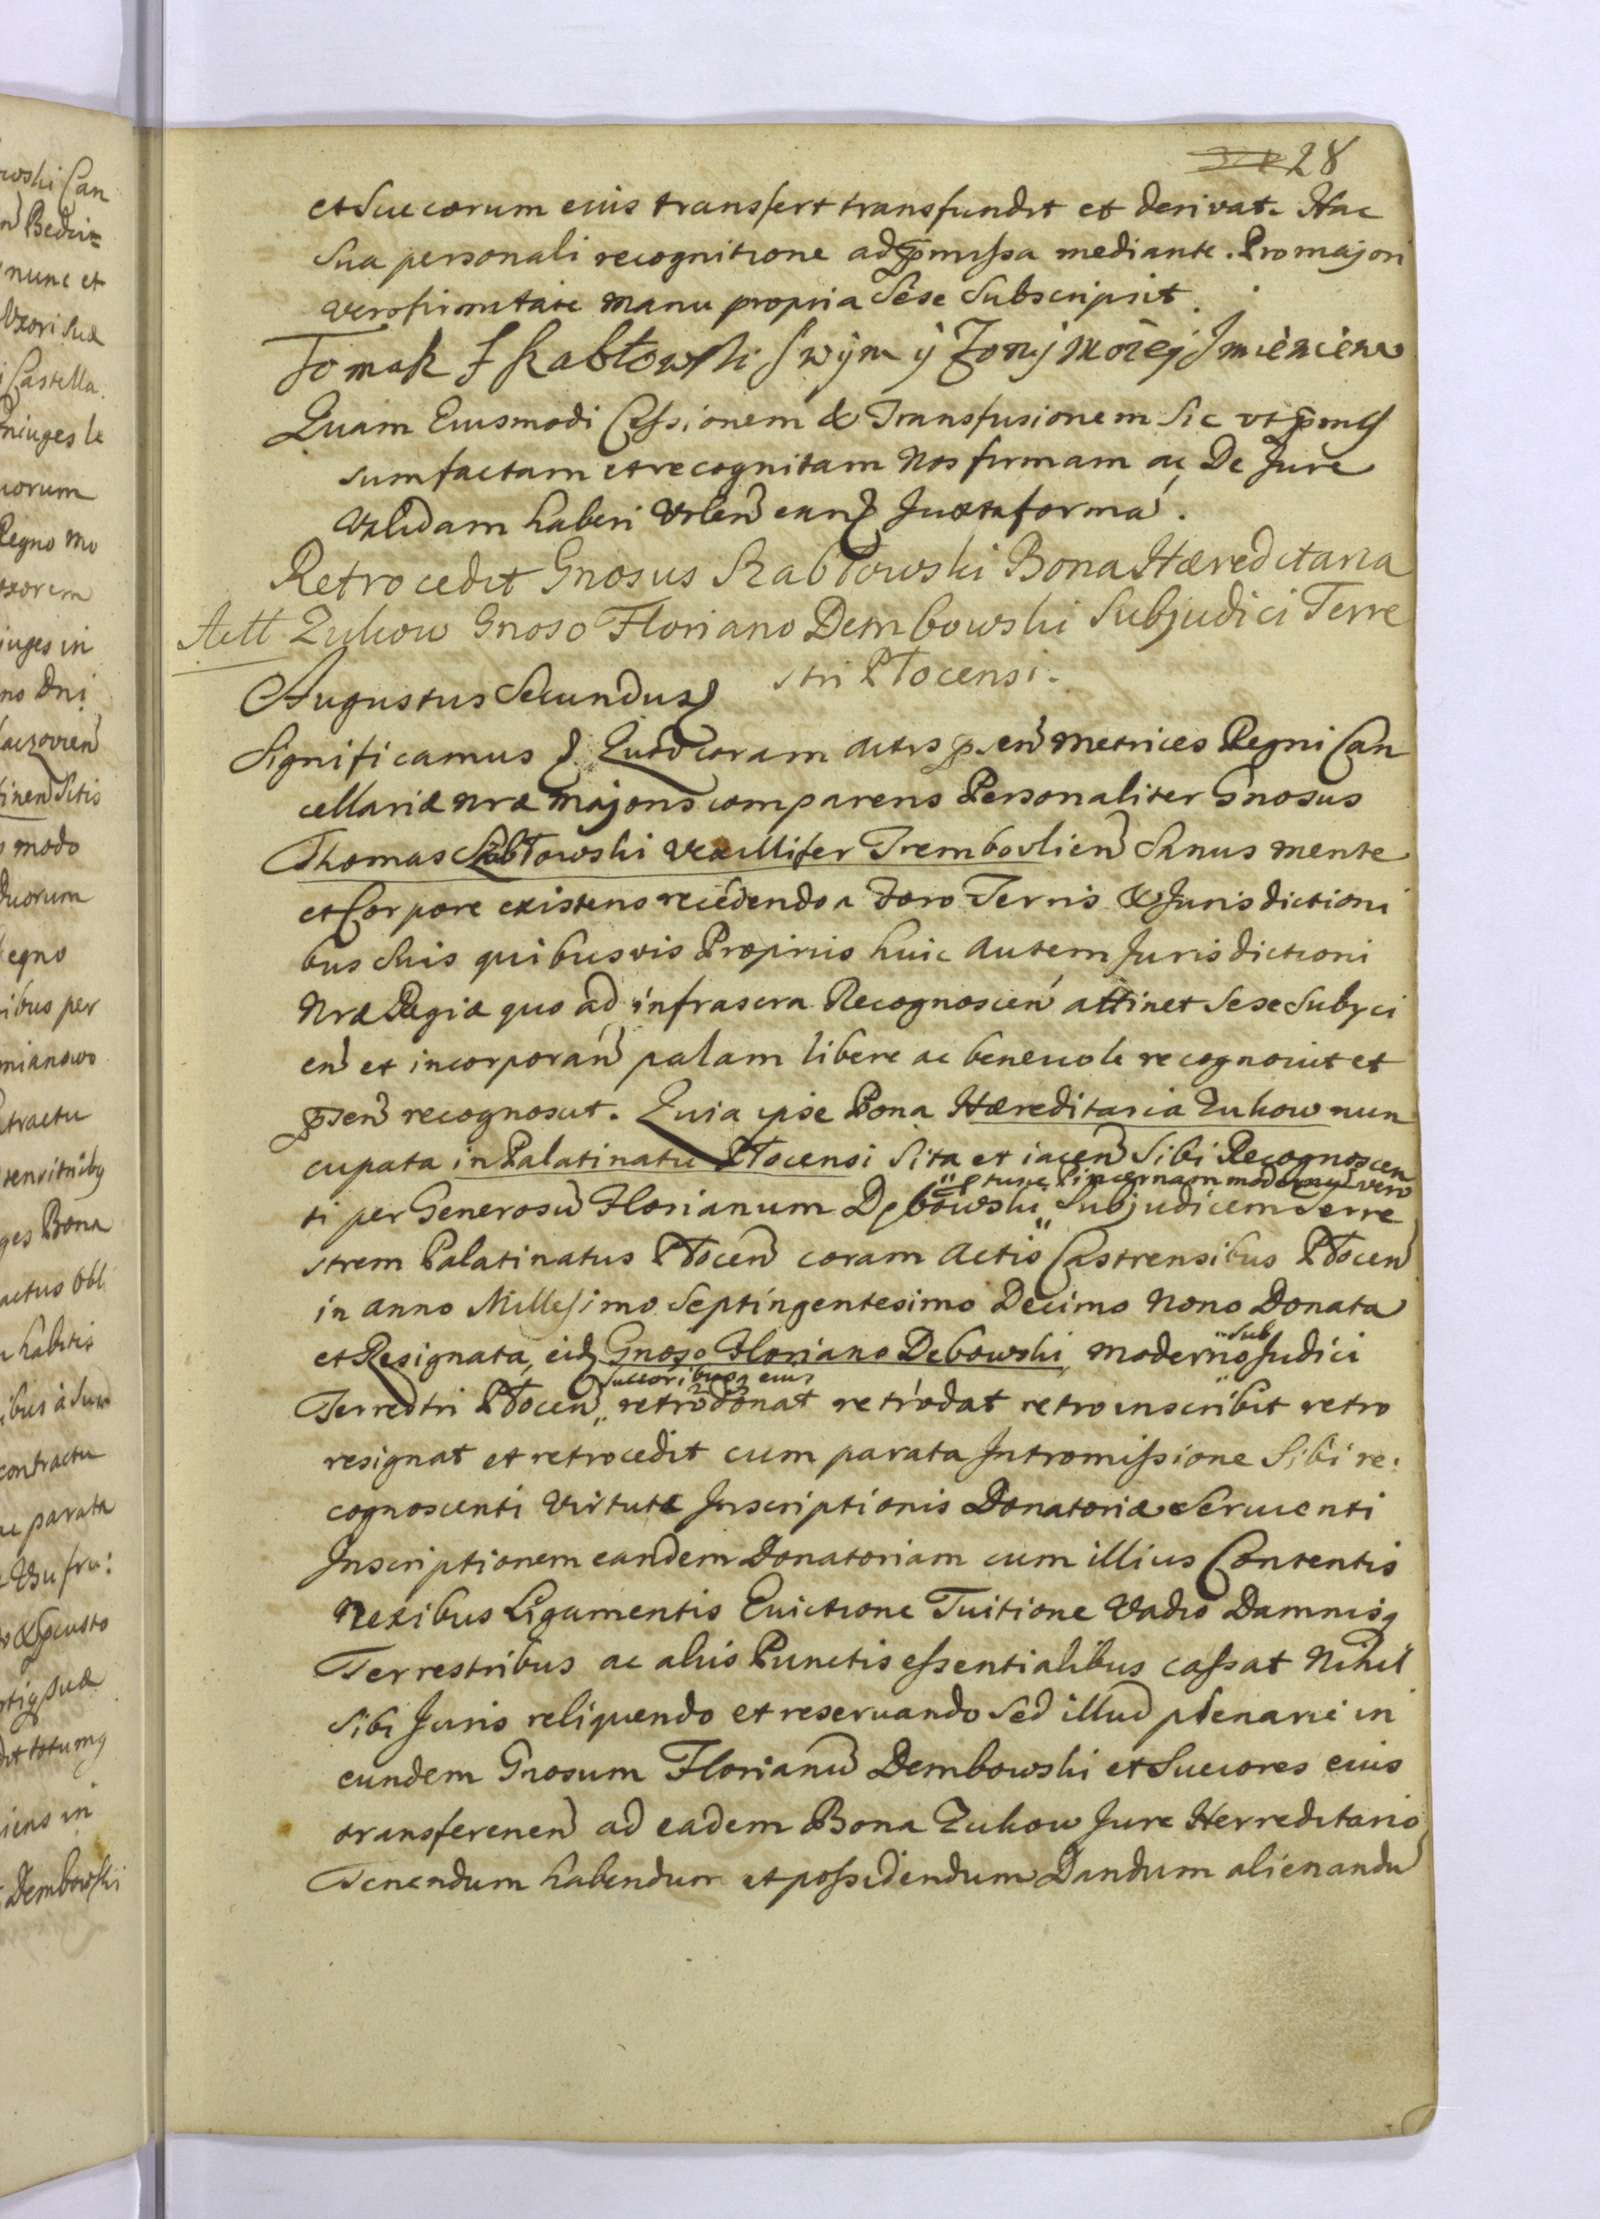 28
et Succorum eius transfert transfundit et derivat. Hac
Sua personali recognitione ad pmissa mediante. Pro majori
vero firmitate manu propria Sese Subscripsit.
Tomasz Skabłowski swym y Zony moiey Imieniem
Quam Eiusmodi Cessionem & Transfusionem Sic ut pmis
sum factam et recognitam Nos firmam ac De Jure
Validam haberi Volen Juxta formã.
Retrocedit Gnosus Skabłowski Bona Hæreditaria
Żukow Gnoso Floriano Dembowski Subjudici Terre
stri Płocensi.
Augustus Secundus
Significamus Quod coram actis psen Metrices Regni Can
cellariæ nræ Majoris comparens Personaliter Gnosus
Thomas Skabłowski Vexillifer Trembovlien Sanus mente
et Corpore existens recedendo a Foro Terris & Jurisdictioni
bus Suis quibusvis Propriis huic autem Jurisdictioni
Nræ Regiæ quo ad infrascra Recognoscen attinet Sese Subyci
en et incorporan palam libere ac benevole recognovit et
psen recognoscit. Quia ipse Bona Hæreditaria Zukow nun
cupata in Palatinatu Płocensi Sita et iacen Sibi Recognoscen
tunc Pincernam modernum vero
ti per Generosũ Florianum Dębowski Subjudicem Terre
strem Palatinatus Płocen coram Actis Castrensibus Płocen
in anno Millesimo Septingentesimo Decimo Nono Donata
Sub
et Resignata, eid Gnoso Floriano Debowski moderno Judici
Succoribusq eius
Terrestri Płocen retrodonat retrodat retroinscribit retro
resignat et retrocedit cum parata Intromissione Sibi re:
cognoscenti Virtute Inscriptionis Donatoriæ Servienti
Inscriptionem eandem Donatoriam cum illius Contentis
Nexibus Ligamentis Evictione Tuitione Vadio Damnisq
Terrestribus ac aliis Punctis essentialibus cassat Nihil
Sibi Juris reliquendo et reservando Sed illud plenarie in
eundem Gnosum Florianũ Dembowski et Succores eius
transferenen ad eadem Bona Zukow Jure Herreditario
Tenendum habendum et possidendum Dandum alienandũ